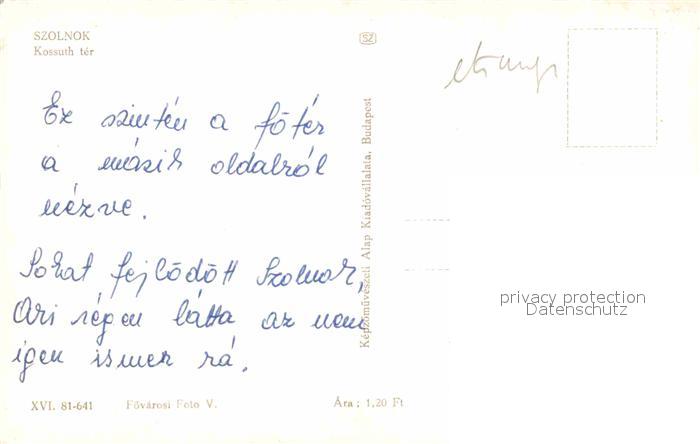 SZOLNOK
Kossuth tér
SZ
Ez szintén a főtér
a másik oldalról
nézve.
Sokat fejlődött Szolnok,
Aki régen látta az nem
igen ismer rá.
Képzőművészeti Alap Kiadóvállalata, Budapest
privacy protection
Datenschutz
XVI. 81-641 Fővárosi Foto V. Ára : 1,20 Ft